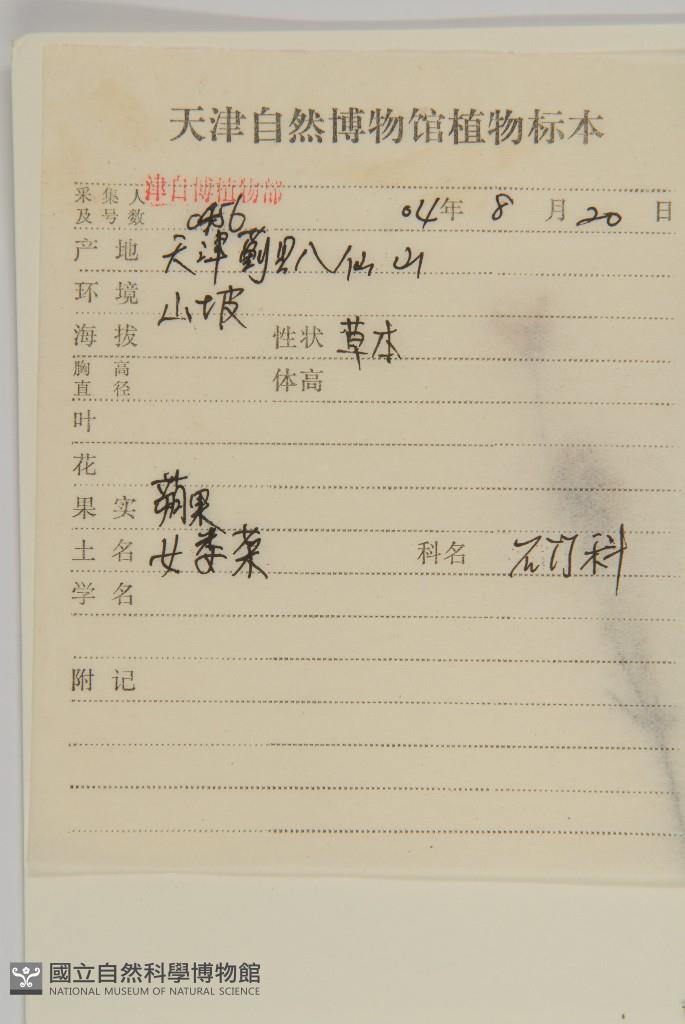 天津自然博物馆植物标本
采集人 津自博植物部
及号数 0456 04年 8 月 20 日
产地 天津蓟县八仙山
环境 山坡
海拔 性状 草本
胸高 体高
直径
叶
花
果实 蒴果
土名 女娄菜 科名 石竹科
学名
附记
國立自然科學博物館
NATIONAL MUSEUM OF NATURAL SCIENCE